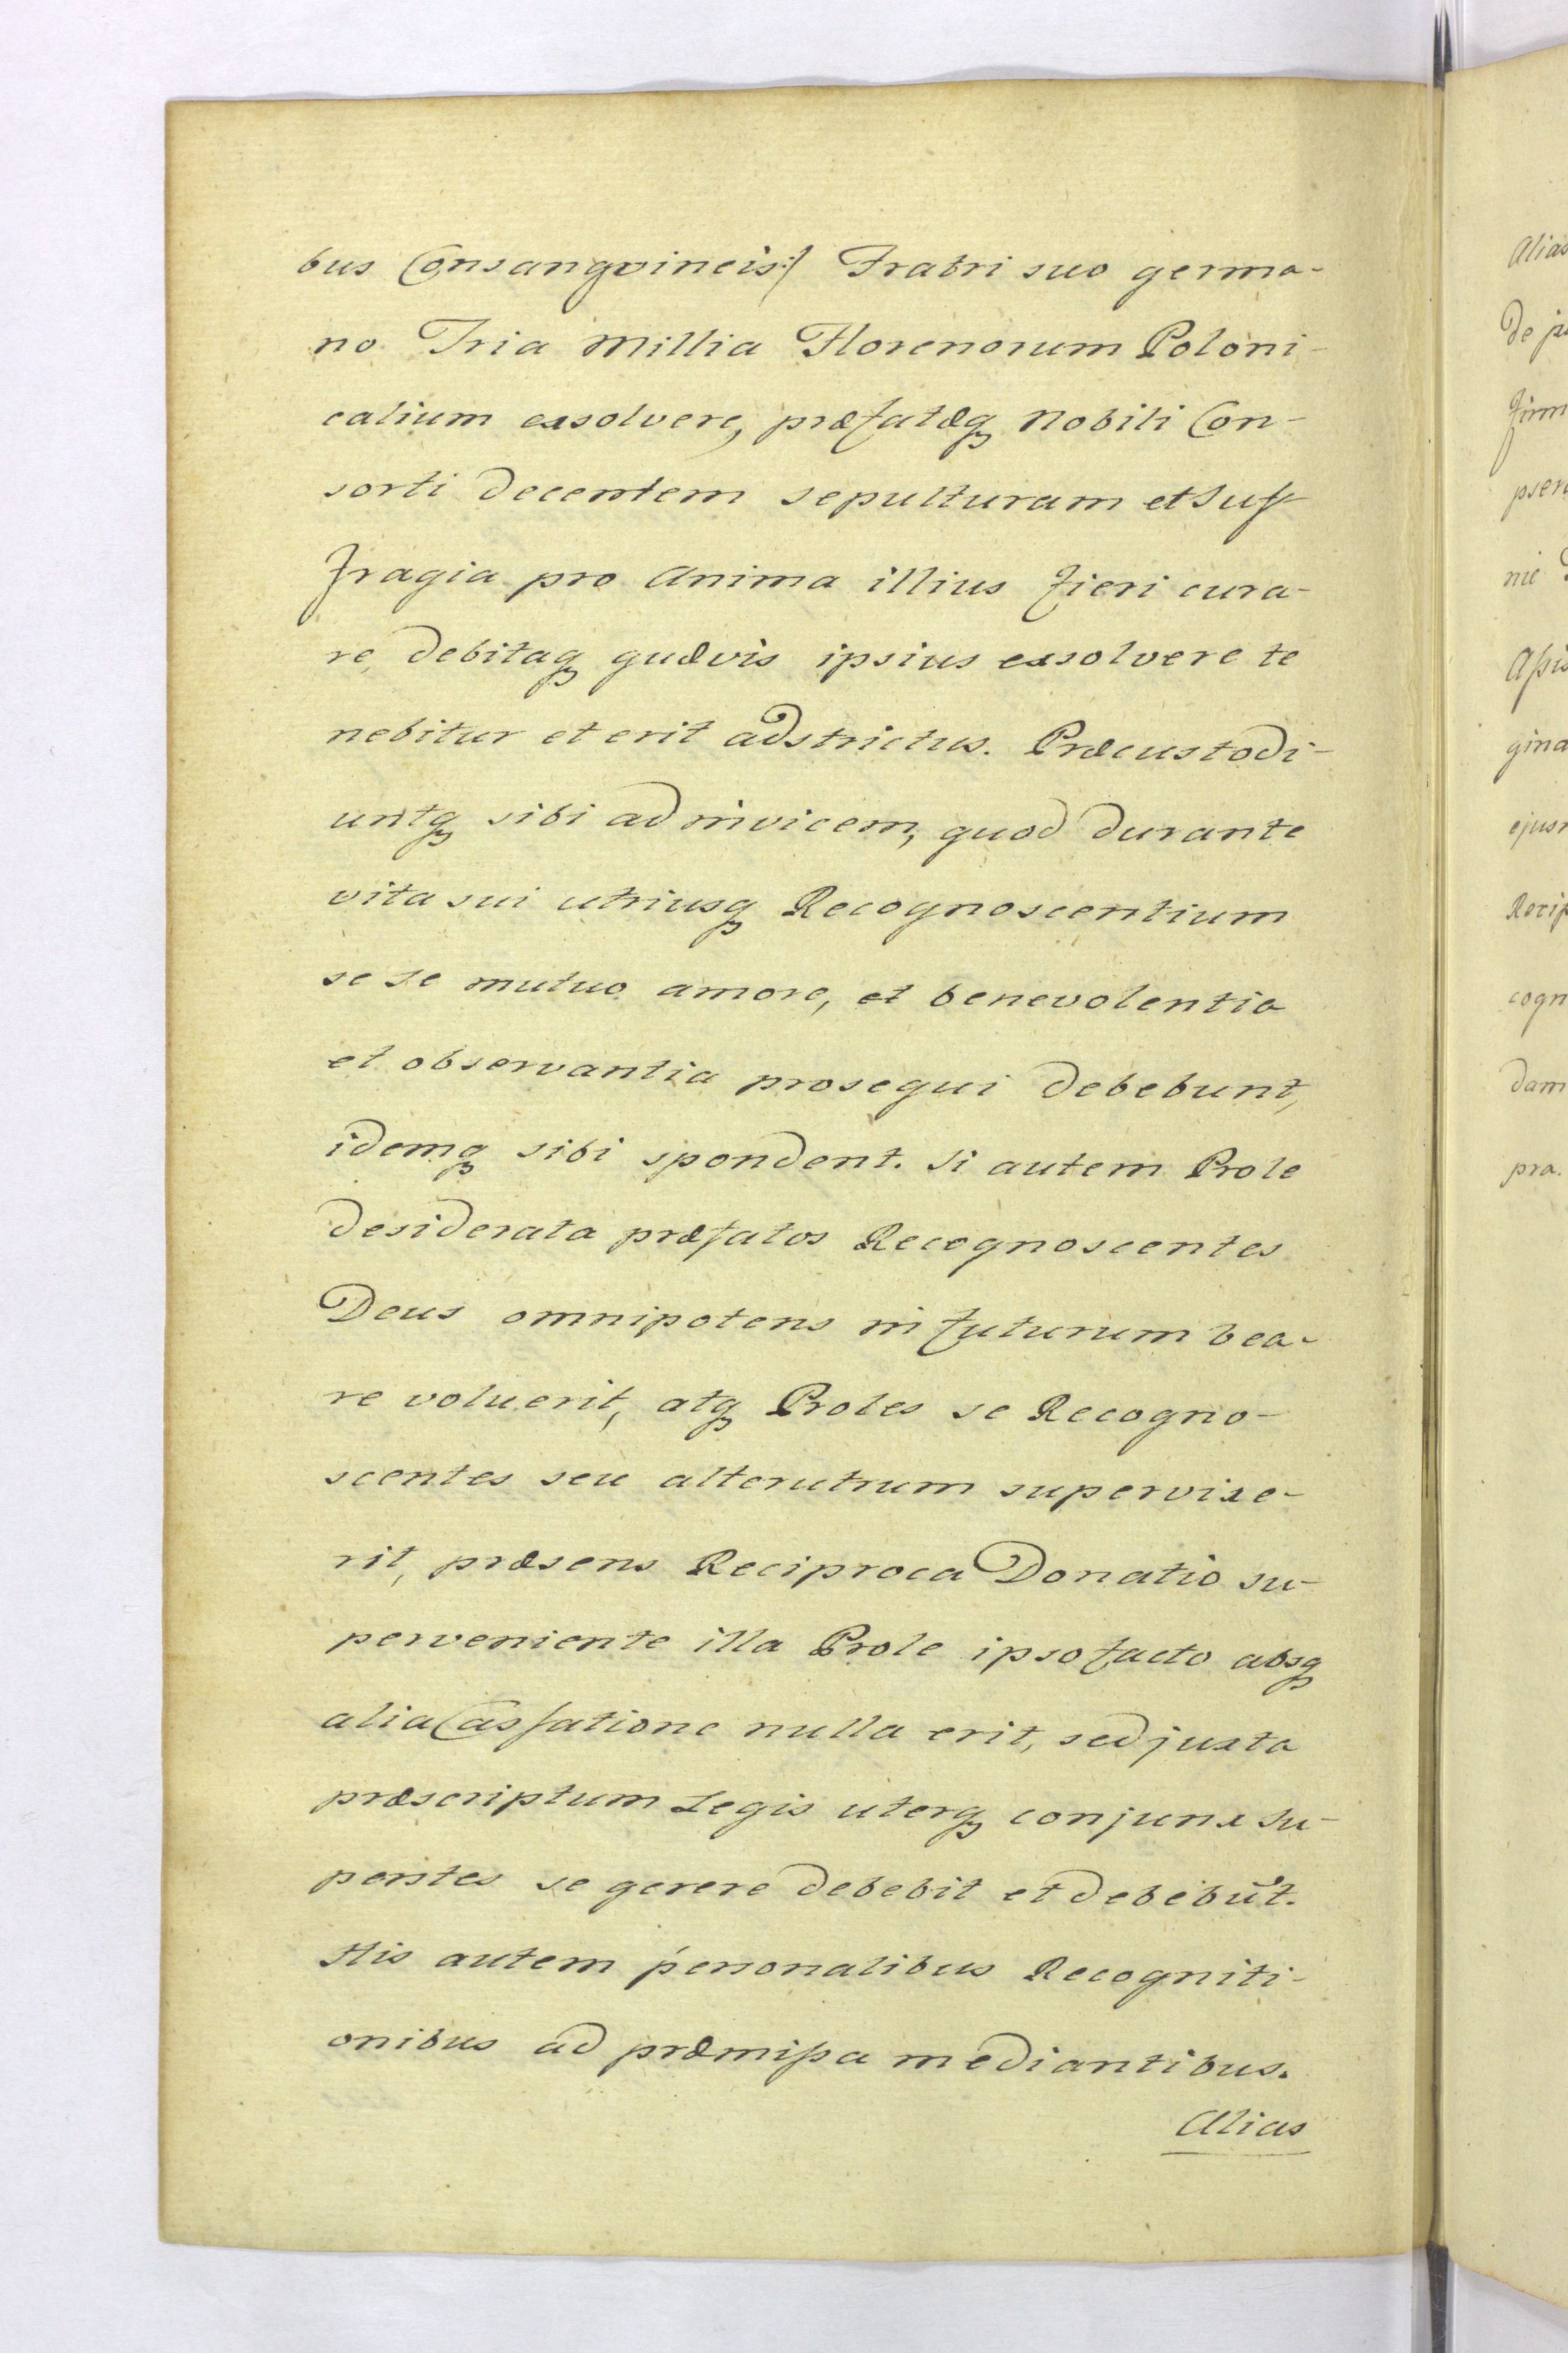 bus Consangvineis:/ Fratri suo germa-
no Tria Millia Florenorum Poloni-
calium exsolvere, præfatæq₃ Nobili Con-
sorti decentem sepulturam et Suf-
fragia pro Anima illius fieri cura-
re, debitaq₃ quævis ipsius exsolvere te
nebitur et erit adstrictus. Præcustodi-
untq₃ sibi ad invicem, quod durante
vita sui utriusq₃ Recognoscentium
se se mutuo amore, et benevolentia
et observantia prosequi debebunt,
idemq₃ sibi spondent. Si autem Prole
desiderata præfatos Recognoscentes
Deus omnipotens in futurum bea-
re voluerit, atq₃ Proles se Recogno-
scentes seu alterutrum supervixe-
rit, præsens Reciproca Donatio su-
perveniente illa Prole ipso facto absq₃
alia Casſatione nulla erit, sed juxta
præscriptum Legis uterq₃ conjunx su-
perstes se gerere debebit et debebūt.
His autem personalibus Recogniti-
onibus ad præmiſsa mediantibus.
Alias
Alias
de ju
firm
pser
nie
Aſsis
gina
ejus
Recip
cogn
dam
pra.